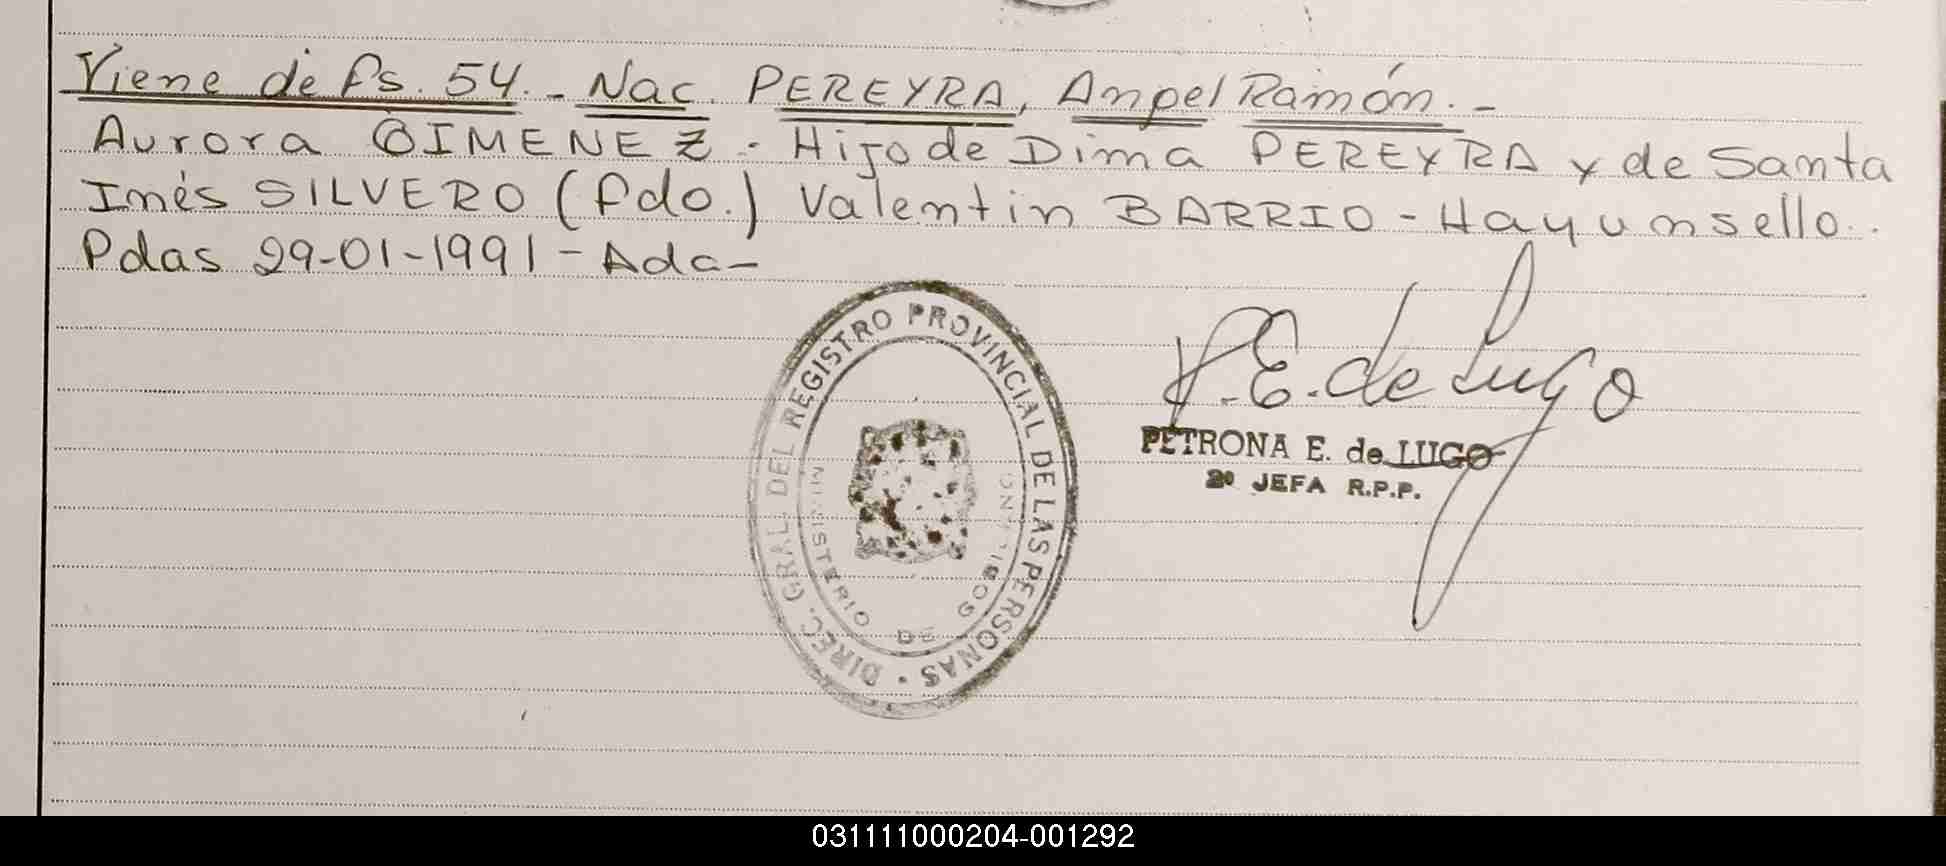 Viene de fs. 54.- Nac. PEREYRA, Angel Ramón.-
Aurora GIMENEZ - Hijo de Dima PEREYRA y de Santa
Inés SILVERO (fdo.) Valentin BARRIO - Hay un sello..
Pdas 29-01-1991 - Ada-
DIREC. GRAL. DEL REGISTRO PROVINCIAL DE LAS PERSONAS
MINISTERIO DE
P.E. de Lugo
PETRONA E. de LUGO
2º JEFA R.P.P.
031111000204-001292